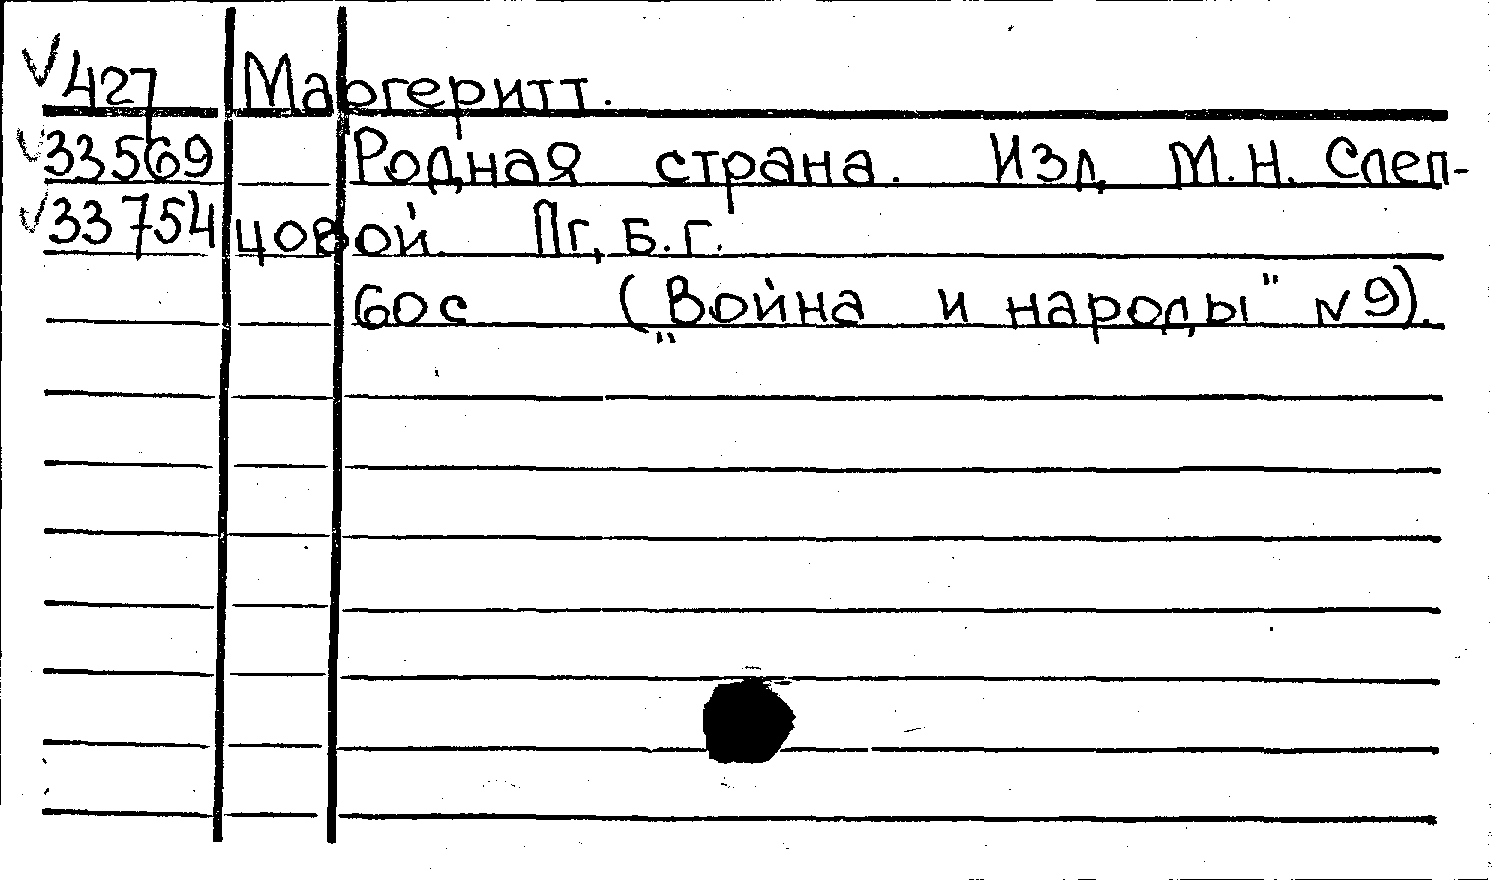 V 427 Маргеритт.
V 33569 Родная страна. Изд. М.Н. Слеп-
V 33754 цовой. Пг, Б.Г.
60 с („Война и народы" N9).